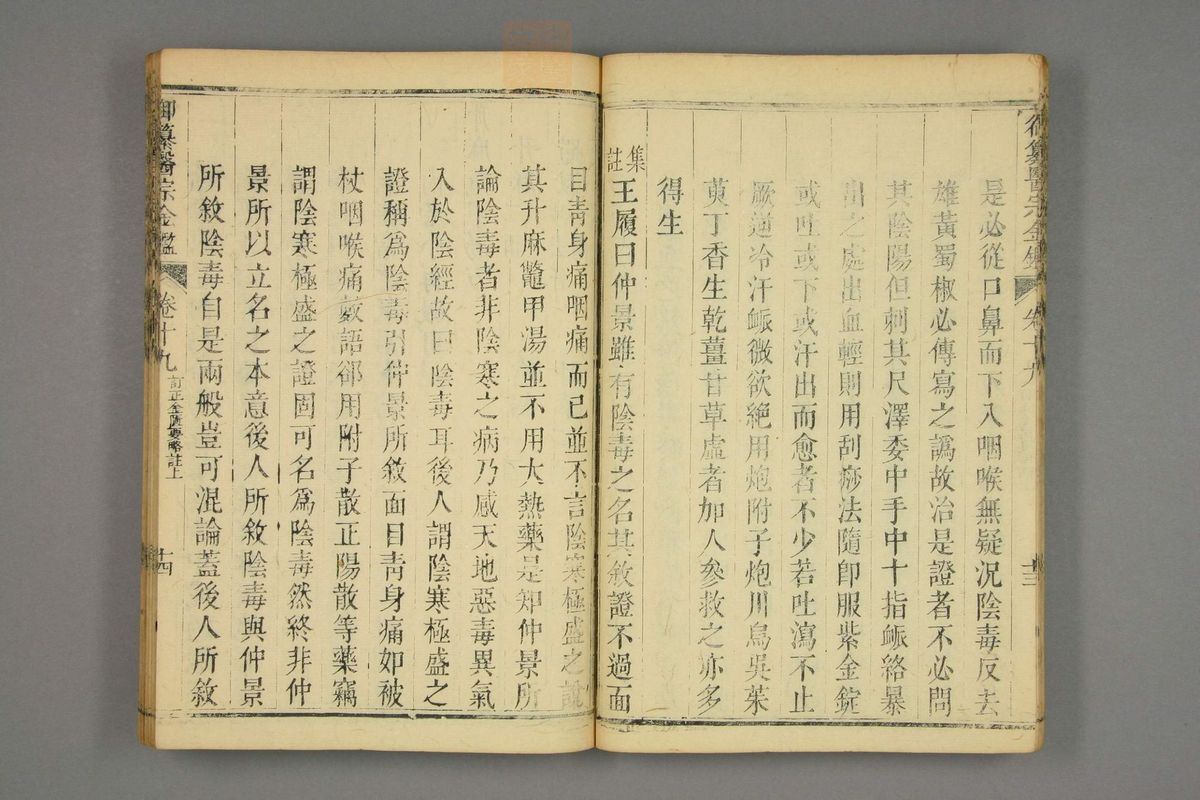 御纂醫宗金鑑 卷十九 十三
是必從口鼻而下入咽喉無疑況陰毒反去
雄黃蜀椒必傳寫之譌故治是證者不必問
其陰陽但刺其尺澤委中手中十指脈絡暴
出之處出血輕則用刮痧法隨即服紫金錠
或吐或下或汗出而愈者不少若吐瀉不止
厥逆冷汗脈微欲絕用炮附子炮川烏吳茱
萸丁香生乾薑甘草虛者加人參救之亦多
得生
集註王履曰仲景雖有陰毒之名其敘證不過面
目青身痛咽痛而已並不言陰寒極盛之說
其升麻鼈甲湯並不用大熱藥是知仲景所
論陰毒者非陰寒之病乃感天地惡毒異氣
入於陰經故曰陰毒耳後人謂陰寒極盛之
證稱爲陰毒引仲景所敘面目靑身痛如被
杖咽喉痛數語卻用附子散正陽散等藥竊
謂陰寒極盛之證固可名爲陰毒然終非仲
景所以立名之本意後人所敘陰毒與仲景
所敘陰毒自是兩般豈可混論蓋後人所敘
御纂醫宗金鑑 卷十九 訂正金匱要略註上 十四